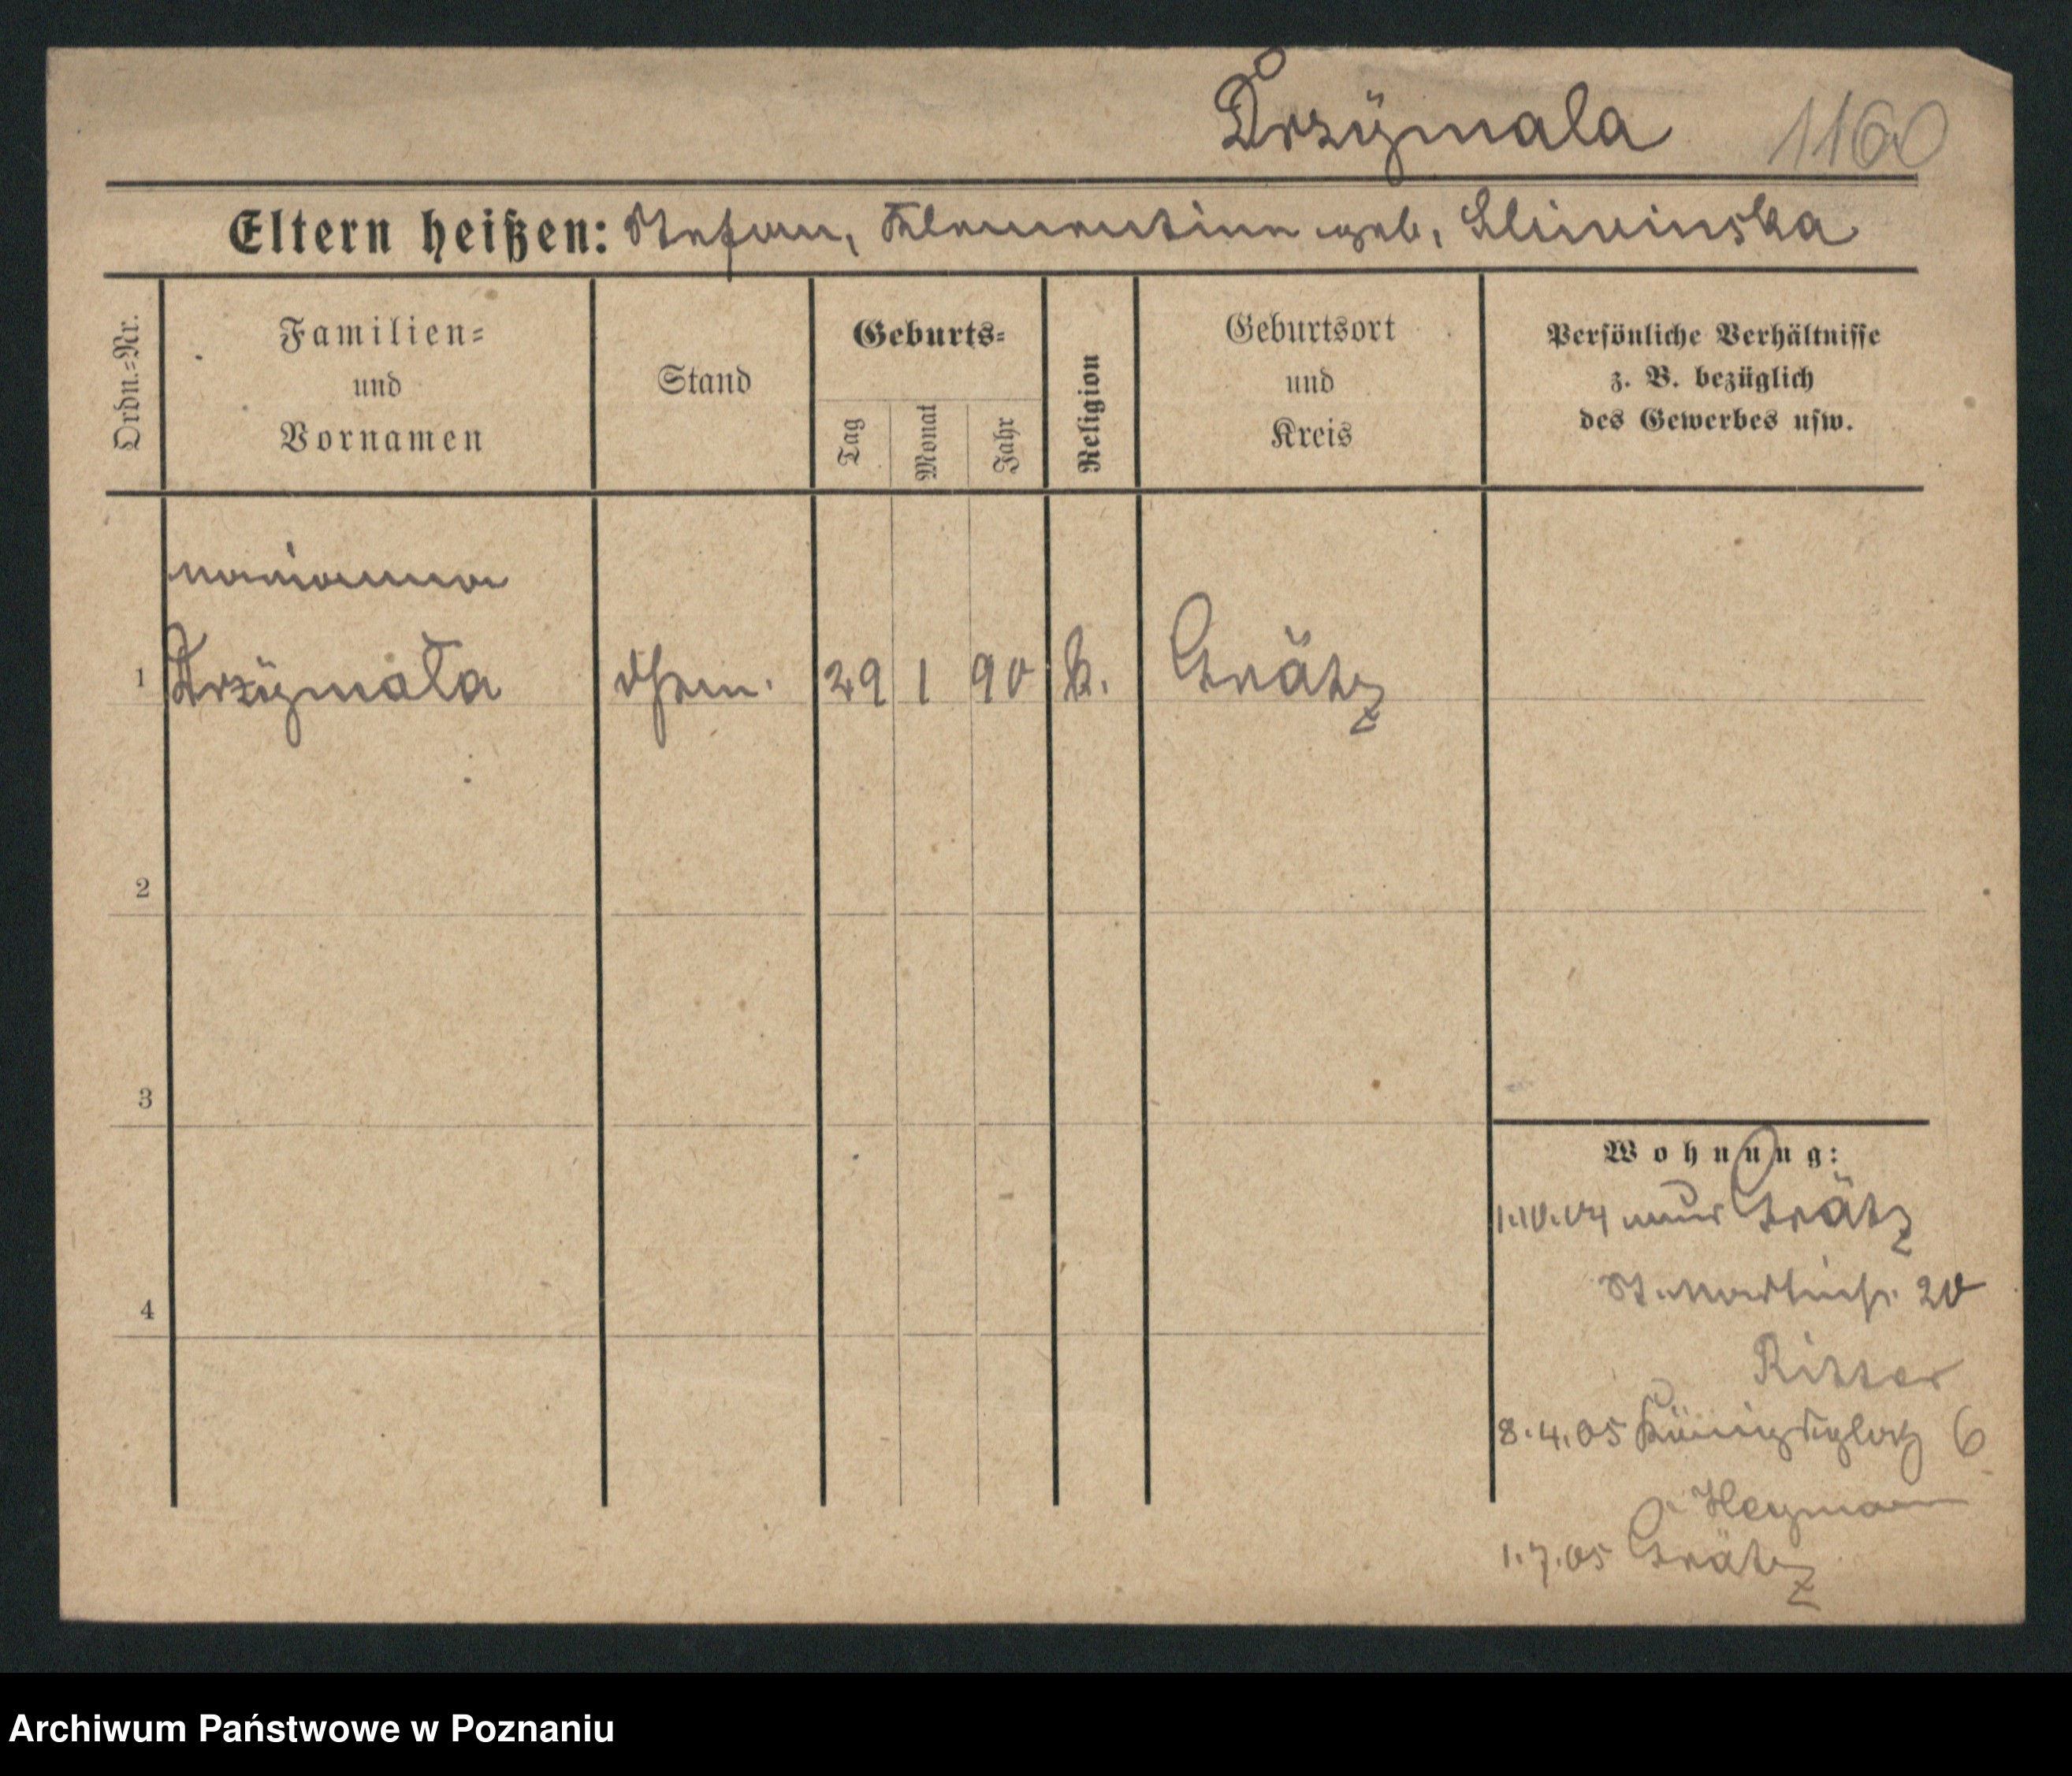 Drzÿmala 1160
Eltern heißen: Stefan, Klementine geb. Sliwinska
Ordn.=Nr.
Familien=
und
Vornamen
Stand
Geburts=
Tag
Monat
Jahr
Religion
Geburtsort
und
Kreis
Persönliche Verhältnisse
z. B. bezüglich
des Gewerbes usw.
Marianna
1 Drzÿmała 29 1 90 k. Grätz
2
3
4
Wohnung:
1.10.04 aus Grätz
St. Martinstr. 20
Ritter
8.4.05 Königsplatz 6
Heymann
1.7.05 Grätz
Archiwum Państwowe w Poznaniu